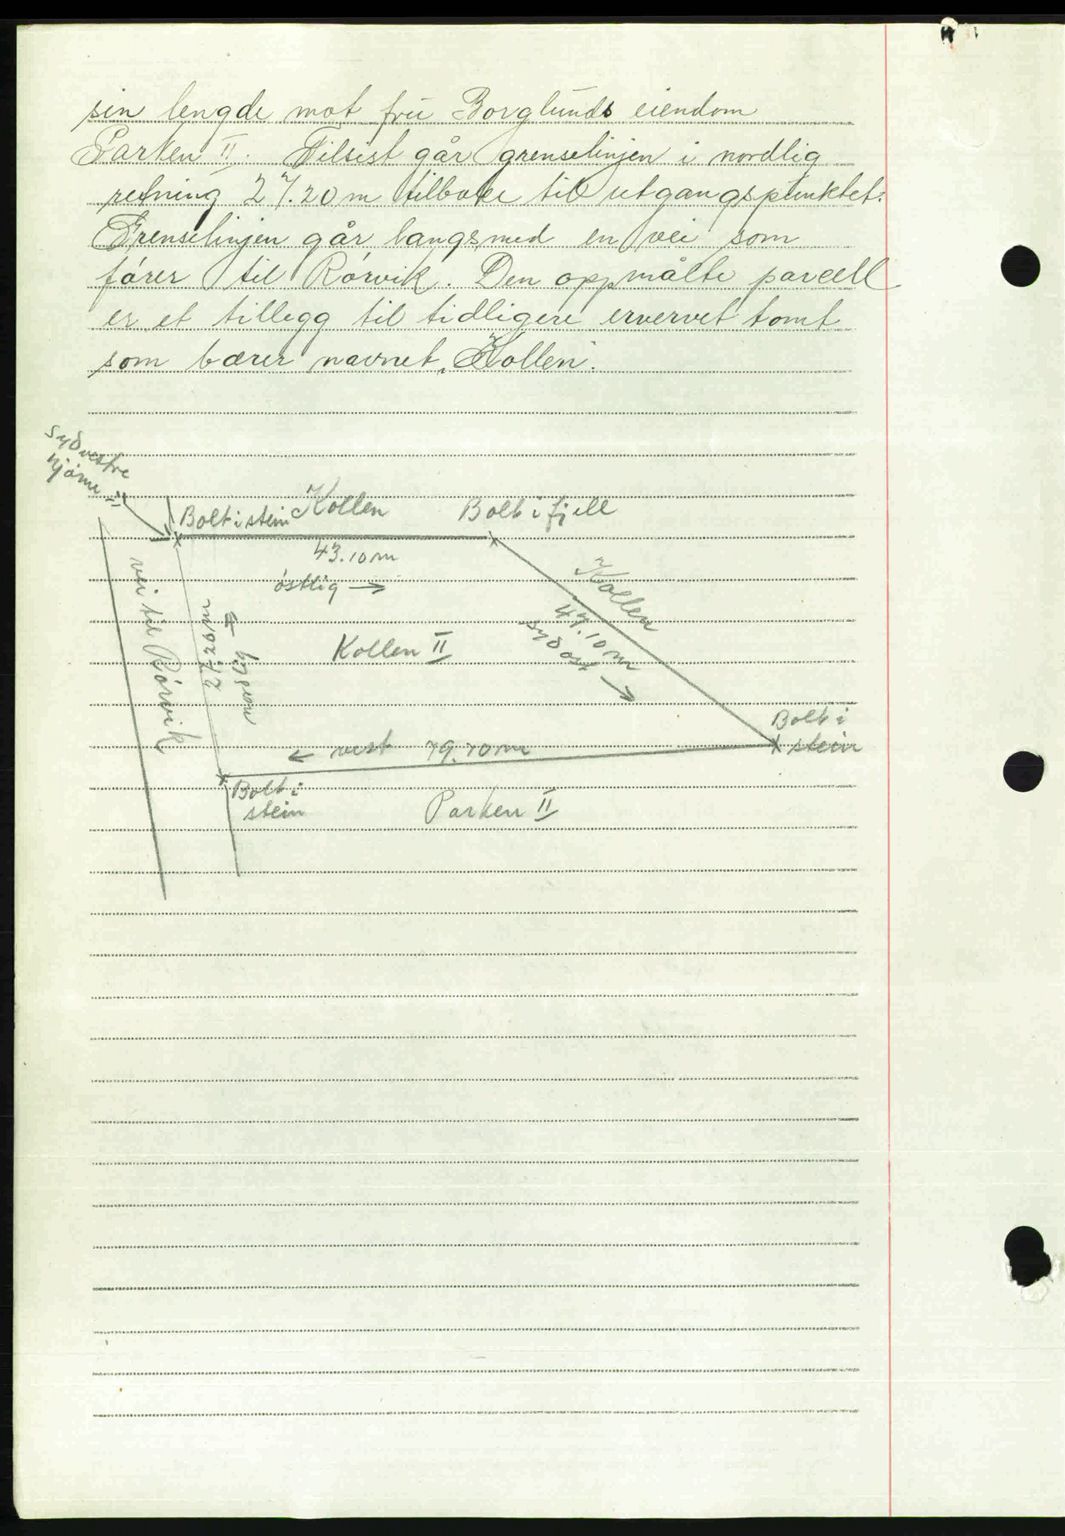 sin lengde mot fru Borglunds eiendom
Parken II. Tilsist går grenselinjen i nordlig
retning 27.20 m tilbake til utgangspunktet.
Grenselinjen går langsmed en vei som
fører til Rørvik. Den oppmålte parcell
er et tillegg til tidligere ervervet tomt
som bærer navnet „Kollen".
Sydvestre
hjørne
Bolt i stein Kollen Bolt i fjell
43.10 m
østlig →
Kollen
47.10 m
sydost →
vei til Rørvik
27.20 m
nordlig →
Kollen II
Bolt i
stein
← vest 79.70 m
Bolt i
stein
Parken II